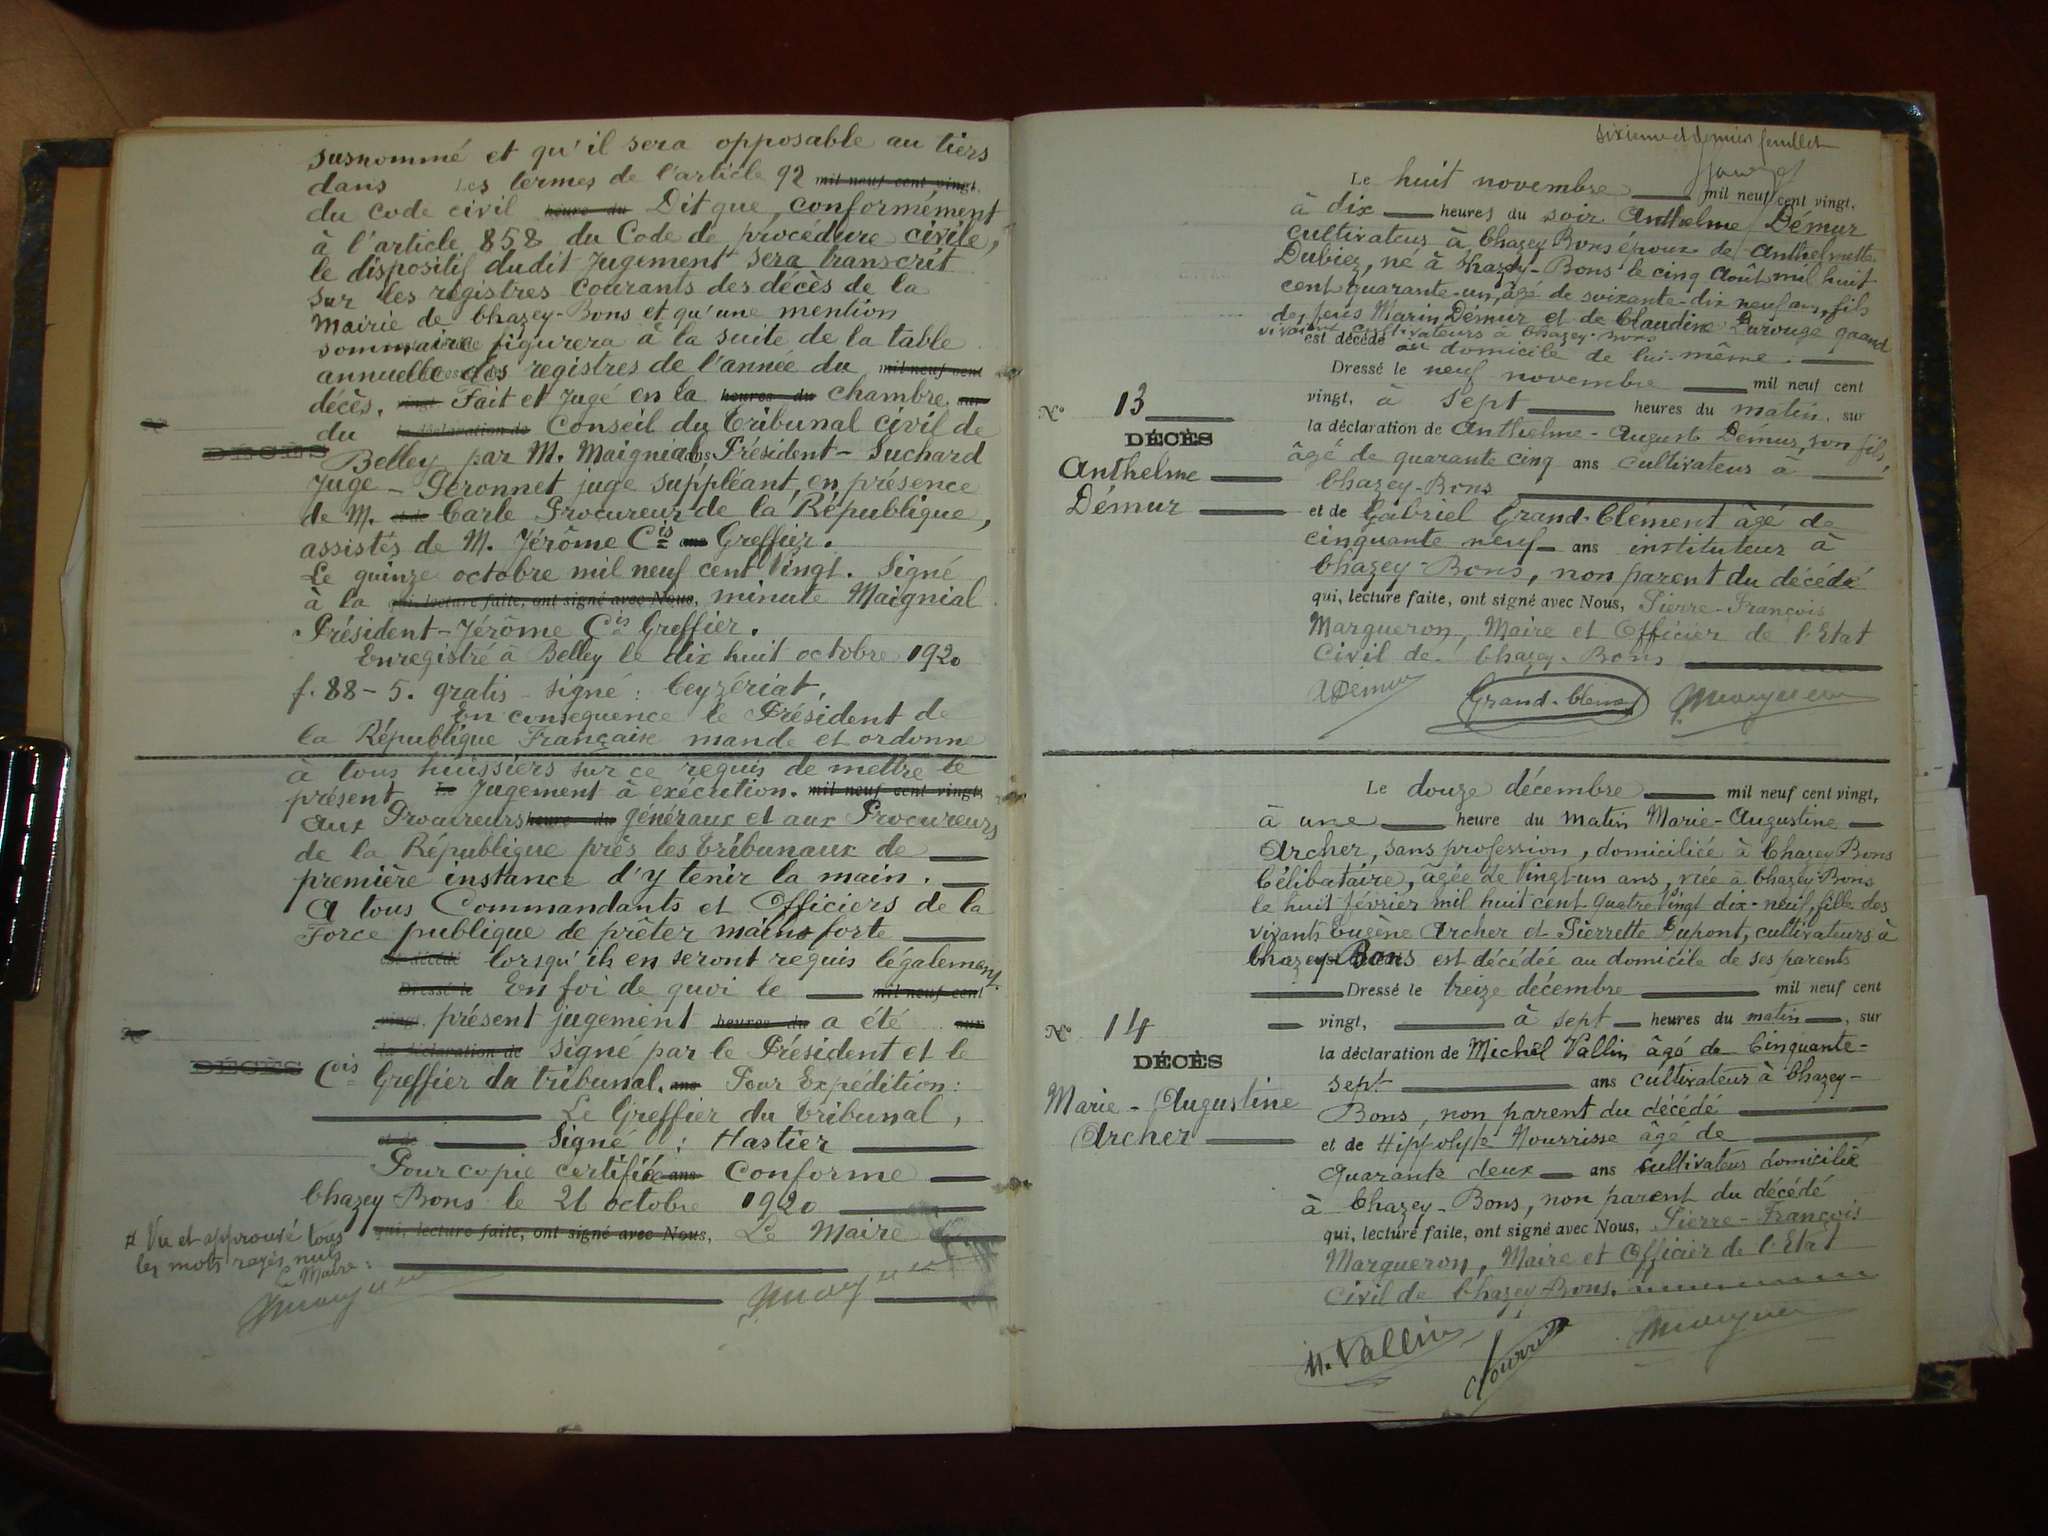 susnommé et qu'il sera opposable au tiers
dans les termes de l'article 92 mil neuf cent vingt,
du Code civil heure du Dit que, conformément
à l'article 858 du Code de procédure civile,
le dispositif dudit Jugement sera transcrit
sur les régistres Courants des décès de la
Mairie de Chazey-Bons et qu'une mention
sommaire figurera à la suite de la table
annuelle des registres de l'année du mil neuf cent
décès. vingt Fait et Jugé en la heures du chambre sur
du la déclaration de Conseil du Tribunal civil de
DÉCÈS
Belley par M. Maignial Président - Suchard
Juge - Peronnet juge suppléant, en présence
de M. et de Carle Procureur de la République,
assistés de M. Jérôme Cis ans Greffier.
Le quinze octobre mil neuf cent Vingt. Signé
à la qui, lecture faite, ont signé avec Nous, minute Maignial
Président - Jérôme Cis Greffier.
Enregistré à Belley le dix huit octobre 1920
f. 88 - 5. gratis - signé : Ceyzériat.
En consequence le Président de
la République Française mande et ordonne
à tous huissiers sur ce requis de mettre le
présent Le Jugement à exécution. mil neuf cent vingt,
Aux Procureurs heure du généraux et aux Procureurs
de la République près les Tribunaux de
première instance d'y tenir la main.
A tous Commandants et Officiers de la
Force publique de prêter main forte
est décédé lorsqu'ils en seront requis légalement.
Dressé le En foi de quoi le mil neuf cent
vingt, présent jugement heures du a été sur
la déclaration de signé par le Président et le
DÉCÈS
Cois Greffier du tribunal. ans Pour Expédition :
Le Greffier du Tribunal,
et de Signé : Hastier
Pour copie certifiée ans Conforme
Chazey-Bons le 21 octobre 1920
qui, lecture faite, ont signé avec Nous, Le Maire
Vu et approuvé tous
les mots rayés nuls
Le Maire :
sixième et dernier feuillet
Le huit novembre mil neuf cent vingt,
à dix heures du soir Anthelme Démur
cultivateur à Chazey Bons époux de Anthelmette
Dubiez, né à Chazey-Bons le cinq Août mil huit
cent quarante-un, âgé de soixante-dix neuf ans, fils
de feus Marin Démur et de Claudine quand
vivaient cultivateurs à Chazey-Bons
est décédé au domicile de lui-même.
Dressé le neuf novembre mil neuf cent
vingt, à sept heures du matin, sur
No 13
DÉCÈS
Anthelme
Démur
la déclaration de Anthelme-Auguste Démur, son fils,
âgé de quarante cinq ans cultivateur à
Chazey-Bons
et de Gabriel Grand-Clément âgé de
cinquante neuf ans instituteur à
Chazey-Bons, non parent du décédé
qui, lecture faite, ont signé avec Nous, Pierre-François
Margueron, Maire et Officier de l'Etat
Civil de Chazey-Bons
ADemur Grand-Clément Margueron
Le douze décembre mil neuf cent vingt,
à une heure du matin Marie-Augustine
Archer, sans profession, domiciliée à Chazey Bons
Célibataire, agée de Vingt-un ans, née à Chazey-Bons
le huit février mil huit cent quatre Vingt dix-neuf, fille des
vivants Eugène Archer et Pierrette Dupont, cultivateurs à
Chazey-Bons est décédée au domicile de ses parents
Dressé le treize décembre mil neuf cent
vingt, à sept heures du matin, sur
No 14
DÉCÈS
Marie-Augustine
Archer
la déclaration de Michel Vallin âgé de Cinquante-
sept ans cultivateur à Chazey-
Bons, non parent du décédé
et de Hippolyte Nourrisse âgé de
Quarante deux ans cultivateur domicilié
à Chazey-Bons, non parent du décédé
qui, lecture faite, ont signé avec Nous, Pierre-François
Margueron, Maire et Officier de l'Etat
Civil de Chazey-Bons.
M. Vallin